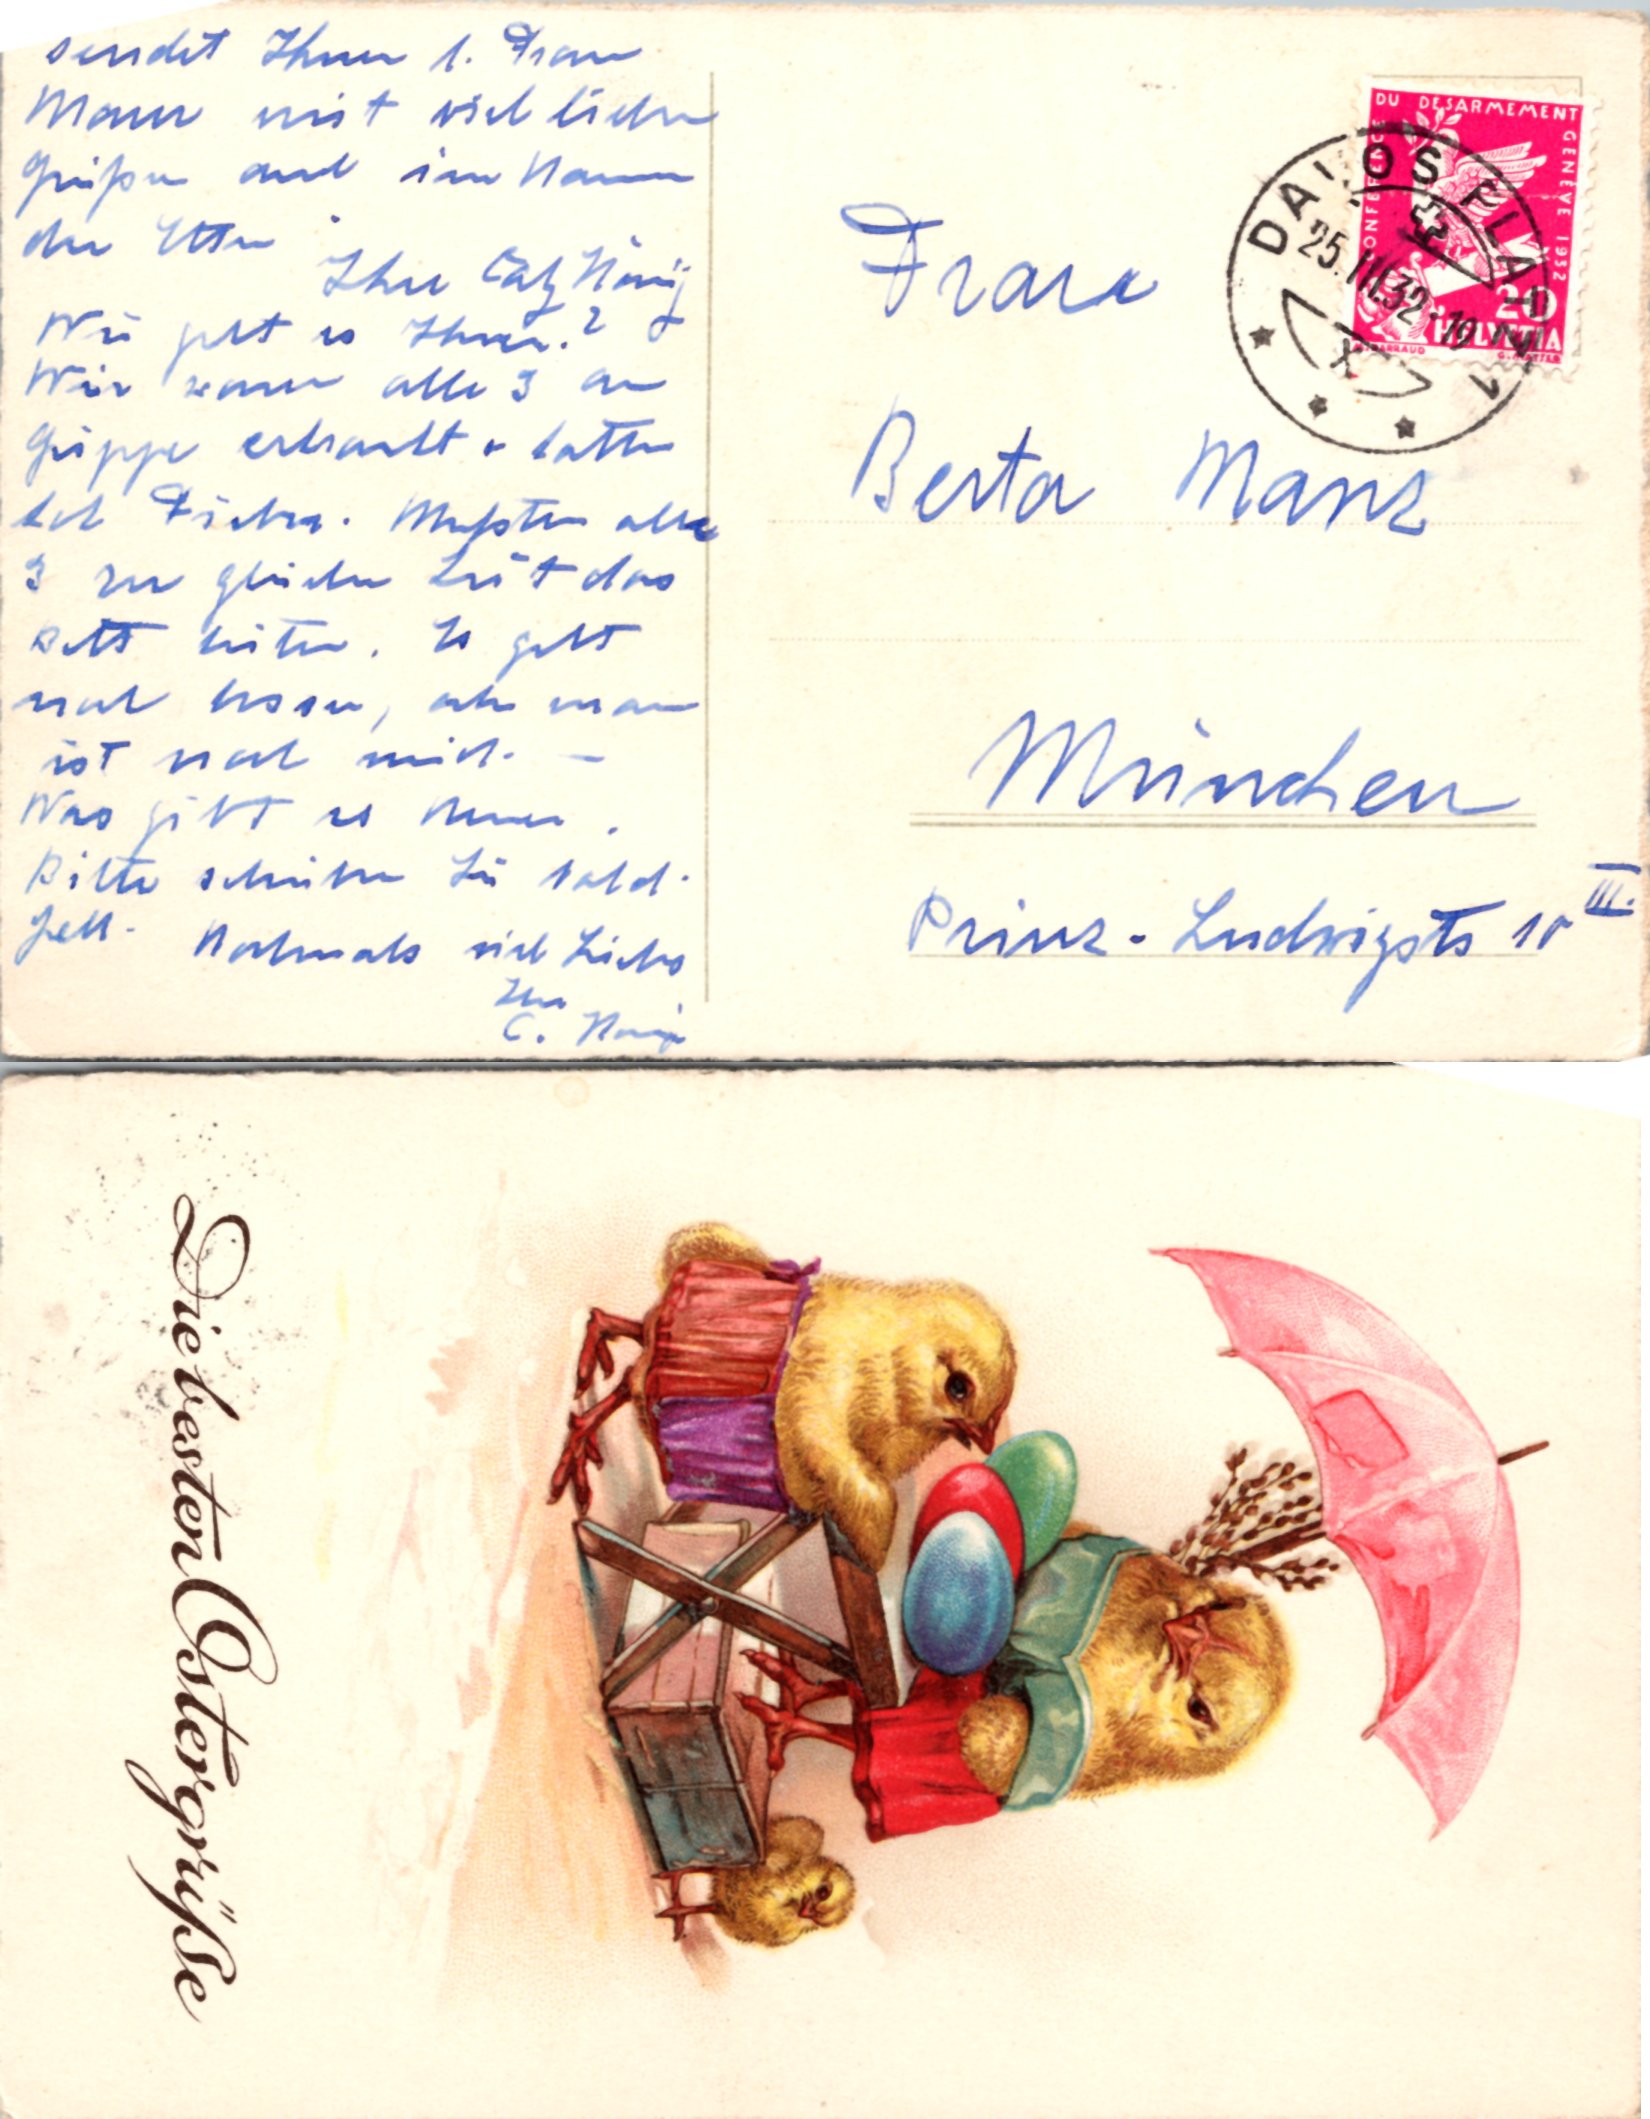 sendet Ihnen l. Frau
Manz mit viel lieben
Grüßen auch im Namen
der Eltern
Ihre Catz König
Wie geht es Ihnen?
Wir waren alle 3 an
Grippe erkrankt u. hatten
hoh Fieber. Mußten alle
3 zur gleichen Zeit das
Bett hüten. Es geht
nun besser, aber man
ist noch müd. —
Was gibt es Neues.
Bitte schreiben Sie bald.
Nochmals viel Liebes
Ihre
C. König
Frau
Berta Manz
München
Prinz-Ludwigstr 10 III.
CONFERENCE DU DESARMEMENT GENEVE 1932
20
HELVETIA
DAVOS PLATZ 1
25.III.32.19
X
Die besten Ostergrüße